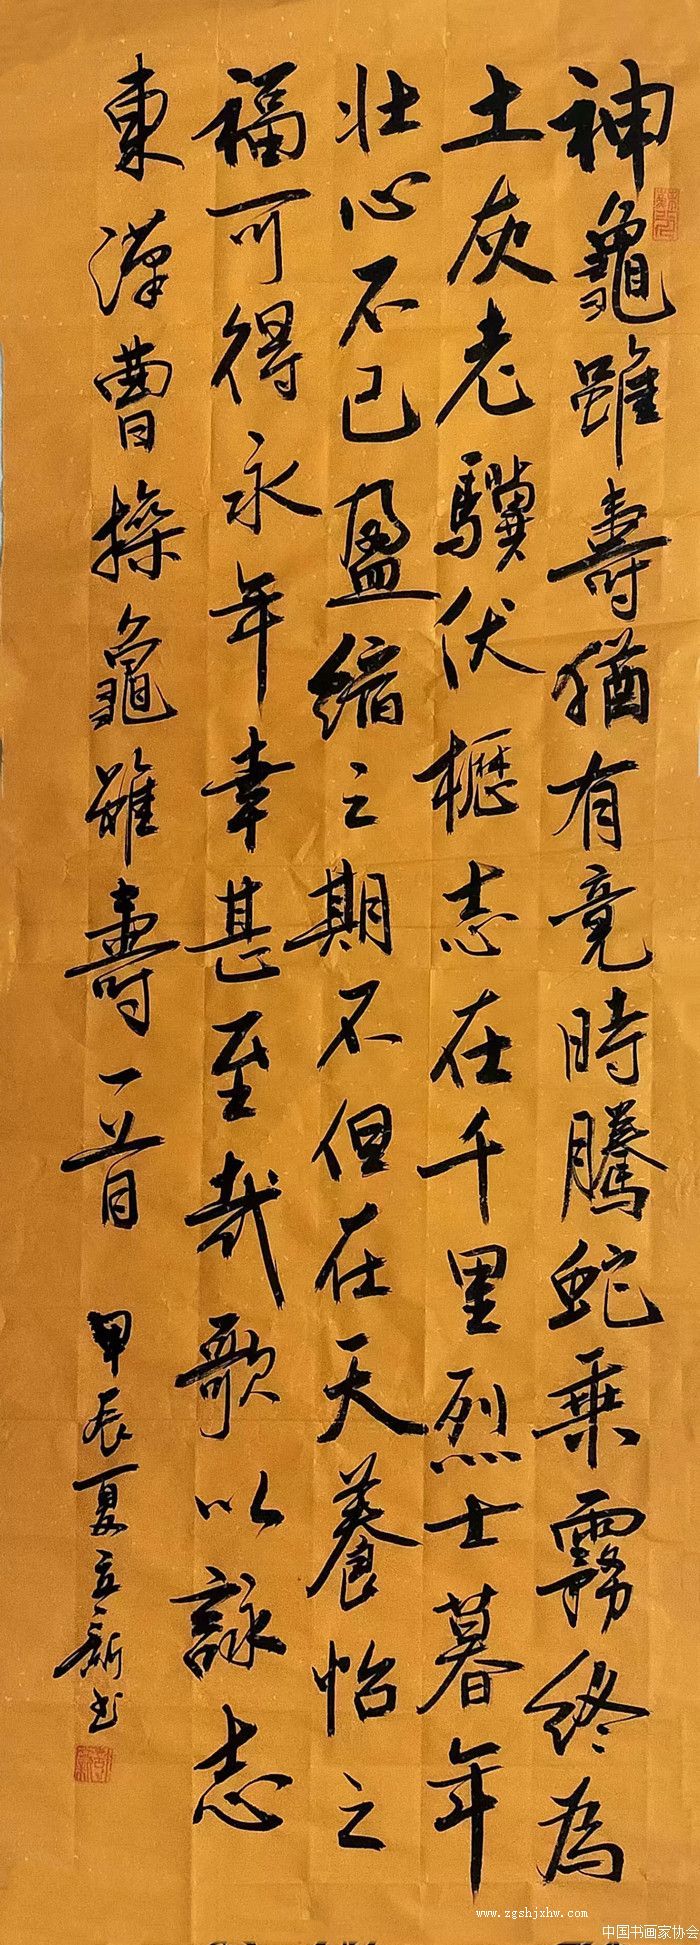 神龜雖壽猶有竟時騰蛇乗霧終為
土灰老驥伏櫪志在千里烈士暮年
壯心不已盈縮之期不但在天養怡之
福可得永年幸甚至哉歌以詠志
東漢曹操龜雖壽一首 甲辰夏立新书
www.zgshjxhw.com
中国书画家协会